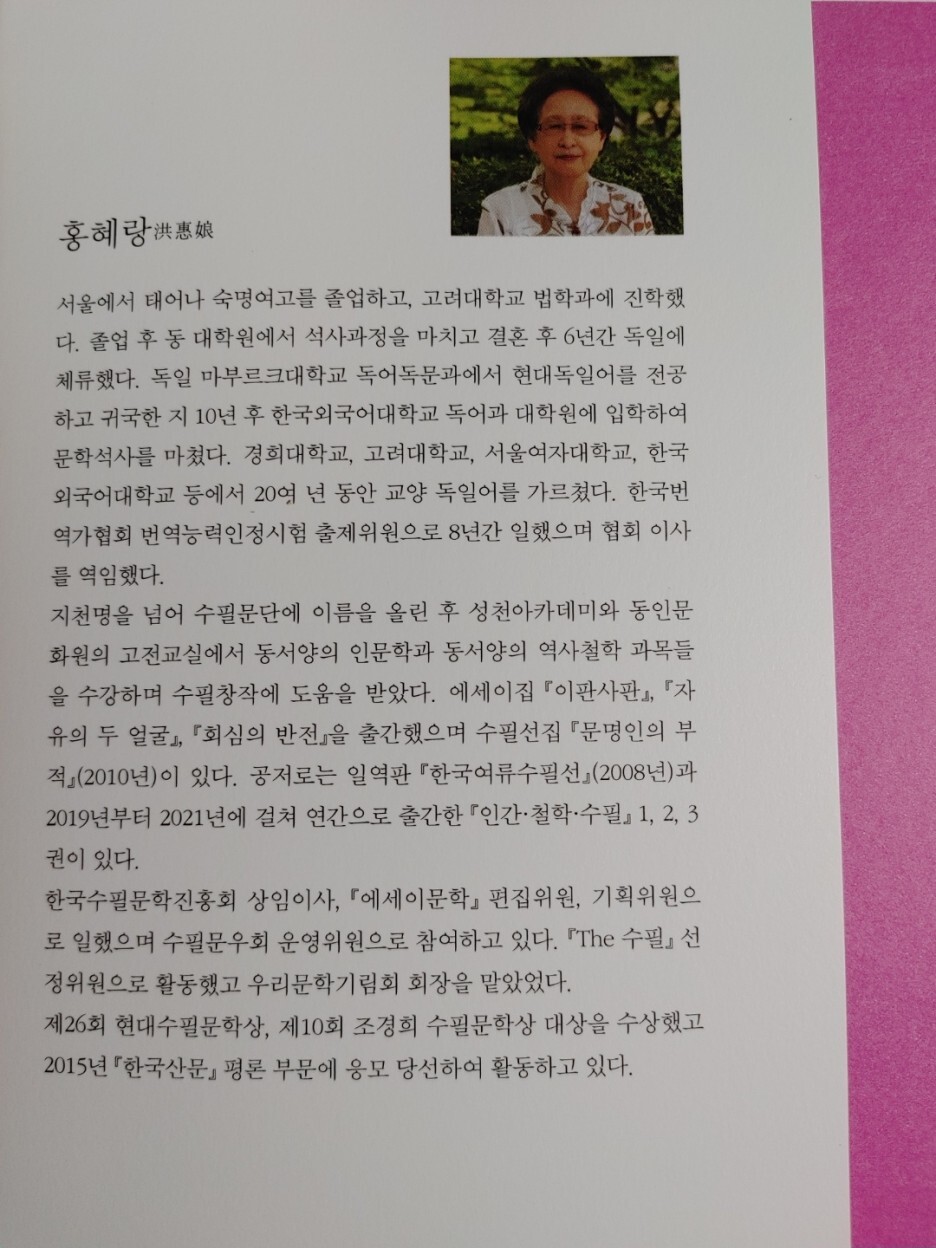 홍혜랑洪惠娘
서울에서 태어나 숙명여고를 졸업하고, 고려대학교 법학과에 진학했
다. 졸업 후 동 대학원에서 석사과정을 마치고 결혼 후 6년간 독일에
체류했다. 독일 마부르크대학교 독어독문과에서 현대독일어를 전공
하고 귀국한 지 10년 후 한국외국어대학교 독어과 대학원에 입학하여
문학석사를 마쳤다. 경희대학교, 고려대학교, 서울여자대학교, 한국
외국어대학교 등에서 20여 년 동안 교양 독일어를 가르쳤다. 한국번
역가협회 번역능력인정시험 출제위원으로 8년간 일했으며 협회 이사
를 역임했다.
지천명을 넘어 수필문단에 이름을 올린 후 성천아카데미와 동인문
화원의 고전교실에서 동서양의 인문학과 동서양의 역사철학 과목들
을 수강하며 수필창작에 도움을 받았다. 에세이집 『이판사판』, 『자
유의 두 얼굴』, 『회심의 반전』을 출간했으며 수필선집 『문명인의 부
적』(2010년)이 있다. 공저로는 일역판 『한국여류수필선』(2008년)과
2019년부터 2021년에 걸쳐 연간으로 출간한 『인간·철학·수필』 1, 2, 3
권이 있다.
한국수필문학진흥회 상임이사, 『에세이문학』 편집위원, 기획위원으
로 일했으며 수필문우회 운영위원으로 참여하고 있다. 『The 수필』 선
정위원으로 활동했고 우리문학기림회 회장을 맡았었다.
제26회 현대수필문학상, 제10회 조경희 수필문학상 대상을 수상했고
2015년 『한국산문』 평론 부문에 응모 당선하여 활동하고 있다.